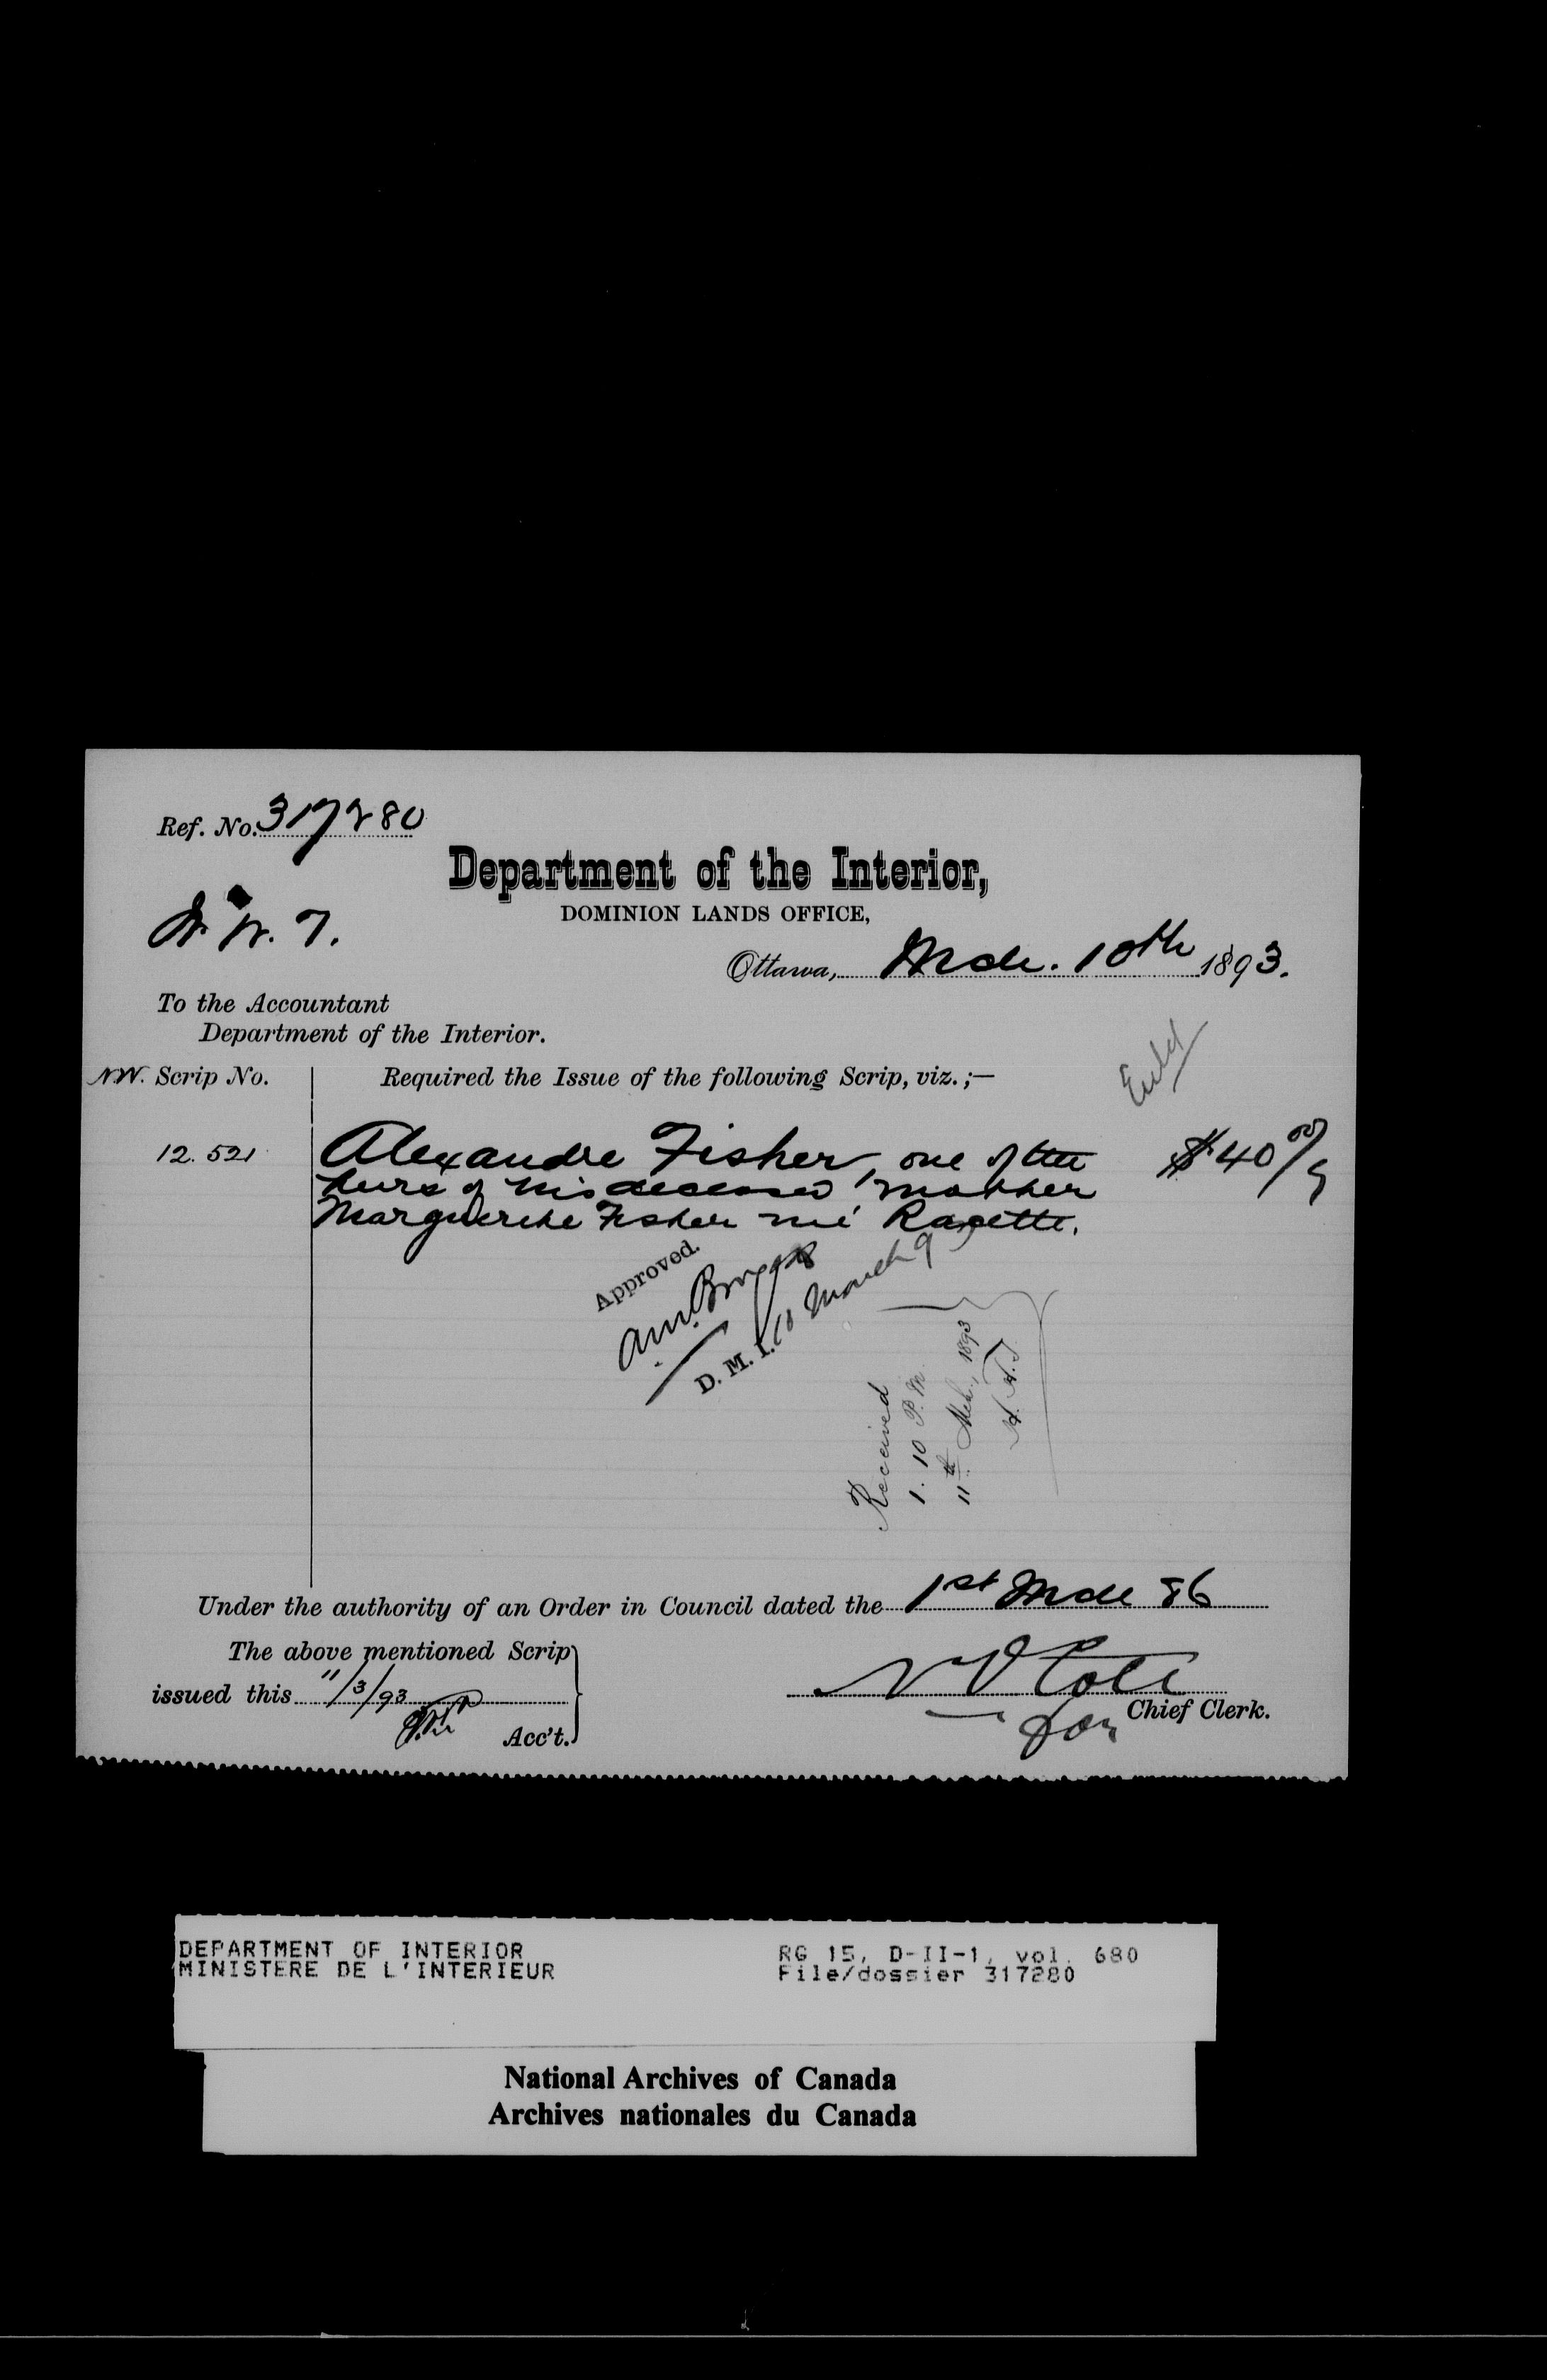 Ref. No. 317280
Department of the Interior,
DOMINION LANDS OFFICE,
N. W. T.
Ottawa, Mch. 10th 1893.
To the Accountant
Department of the Interior.
N.W. Scrip No.
Required the Issue of the following Scrip, viz.;—
12.521
Alexandre Fisher, one of the
heirs of his deceased mother
Marguerite Fisher né Racette.
$40 00/
Approved.
D. M. I. 10 March 9
Received
1.10 P.M.
11th Mch., 1893
Under the authority of an Order in Council dated the 1st Mch 86
The above mentioned Scrip
issued this 11/3/93
Acc't.
N O Coté
for Chief Clerk.
DEPARTMENT OF INTERIOR
MINISTERE DE L'INTERIEUR
RG 15, D-II-1, vol. 680
File/dossier 317280
National Archives of Canada
Archives nationales du Canada